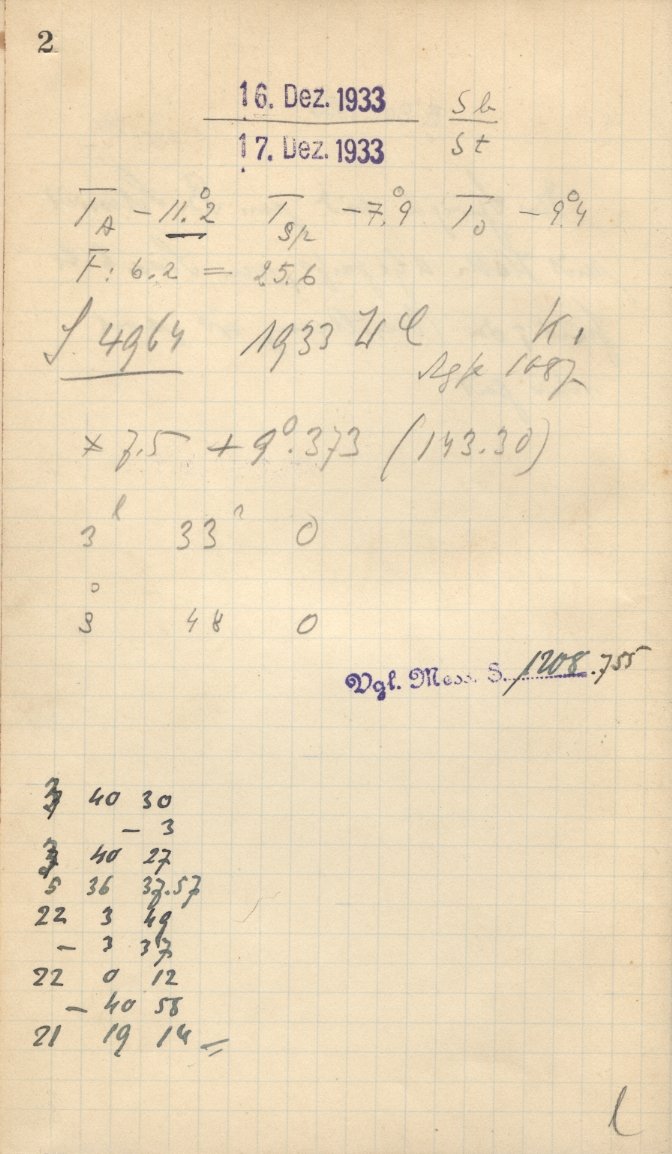 2
16. Dez. 1933
17. Dez. 1933
Sb
St
T_A -11.°2 T_Sp -7.°9 T_0 -9.°4
F: 6.2 = 25.6
S 4964 1933 K.
1087
× 7.5 + 9°.373 (143.30)
3 33 0
9° 48 0
Vgl. Mess. S. 1208.755
3 40 30
- 3
3 40 27
5 36 37.57
22 3 49
- 3 37
22 0 12
- 40 58
21 19 14 =